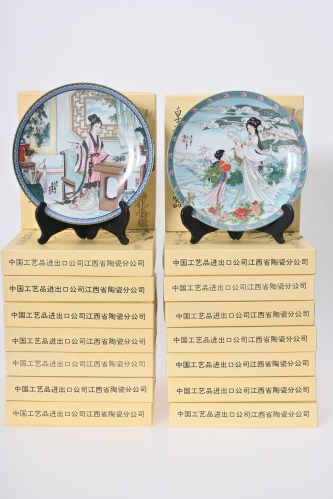 中国工艺品进出口公司江西省陶瓷分公司
中国工艺品进出口公司江西省陶瓷分公司
中国工艺品进出口公司江西省陶瓷分公司
中国工艺品进出口公司江西省陶瓷分公司
中国工艺品进出口公司江西省陶瓷分公司
中国工艺品进出口公司江西省陶瓷分公司
中国工艺品进出口公司江西省陶瓷分公司
中国工艺品进出口公司江西省陶瓷分公司
中国工艺品进出口公司江西省陶瓷分公司
中国工艺品进出口公司江西省陶瓷分公司
中国工艺品进出口公司江西省陶瓷分公司
中国工艺品进出口公司江西省陶瓷分公司
中国工艺品进出口公司江西省陶瓷分公司
中国工艺品进出口公司江西省陶瓷分公司